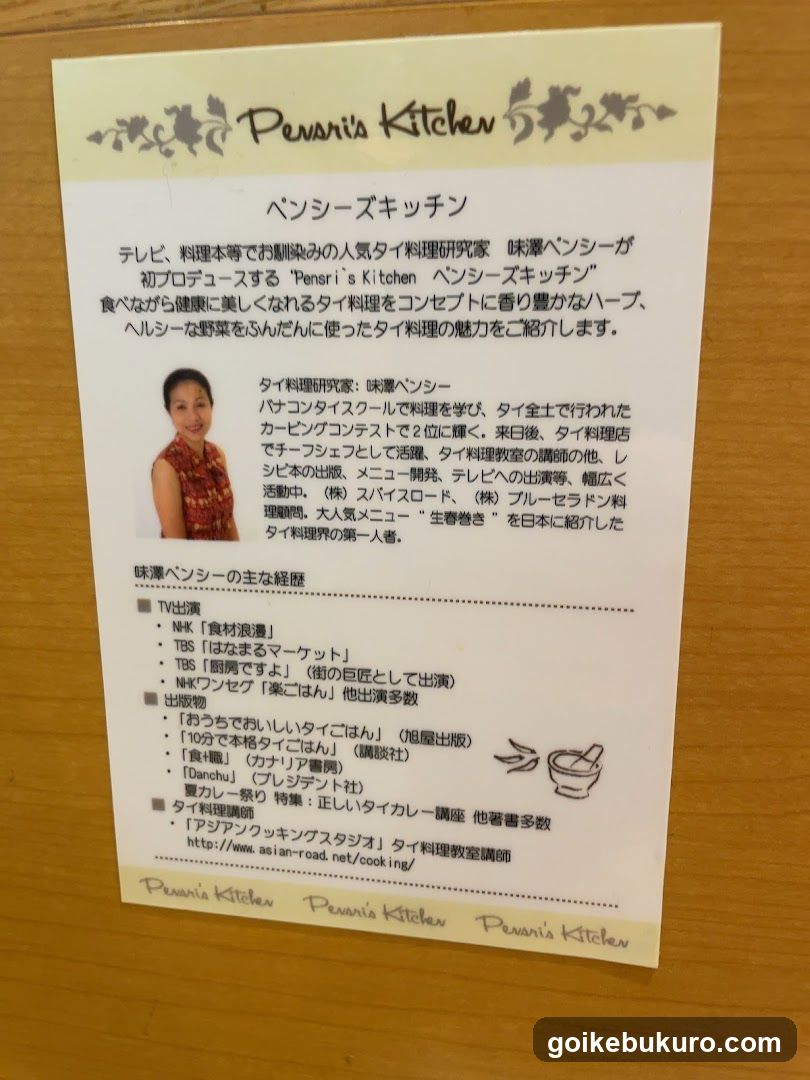 Pensri's Kitchen
ペンシーズキッチン
テレビ、料理本等でお馴染みの人気タイ料理研究家　味澤ペンシーが
初プロデュースする "Pensri`s Kitchen　ペンシーズキッチン"
食べながら健康に美しくなれるタイ料理をコンセプトに香り豊かなハーブ、
ヘルシーな野菜をふんだんに使ったタイ料理の魅力をご紹介します。
タイ料理研究家: 味澤ペンシー
バナコンタイスクールで料理を学び、タイ全土で行われた
カービングコンテストで２位に輝く。来日後、タイ料理店
でチーフシェフとして活躍、タイ料理教室の講師の他、レ
シピ本の出版、メニュー開発、テレビへの出演等、幅広く
活動中。（株）スパイスロード、（株）ブルーセラドン料
理顧問。大人気メニュー "生春巻き" を日本に紹介した
タイ料理界の第一人者。
味澤ペンシーの主な経歴
■ TV出演
・ NHK「食材浪漫」
・ TBS「はなまるマーケット」
・ TBS「厨房ですよ」（街の巨匠として出演）
・ NHKワンセグ「楽ごはん」他出演多数
■ 出版物
・「おうちでおいしいタイごはん」（旭屋出版）
・「10分で本格タイごはん」（講談社）
・「食+職」（カナリア書房）
・「Danchu」（プレジデント社）
夏カレー祭り 特集：正しいタイカレー講座 他著書多数
■ タイ料理講師
・「アジアンクッキングスタジオ」タイ料理教室講師
http://www.asian-road.net/cooking/
Pensri's Kitchen Pensri's Kitchen Pensri's Kitchen
goikebukuro.com